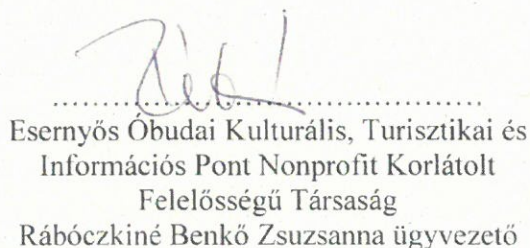 Esernyős Óbudai Kulturális, Turisztikai és
Információs Pont Nonprofit Korlátolt
Felelősségű Társaság
Rábóczkiné Benkő Zsuzsanna ügyvezető